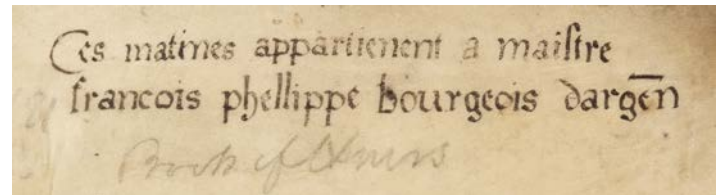 Ces matines appartienent a maistre
francois phellippe bourgeois dargen̄
Book of Hours